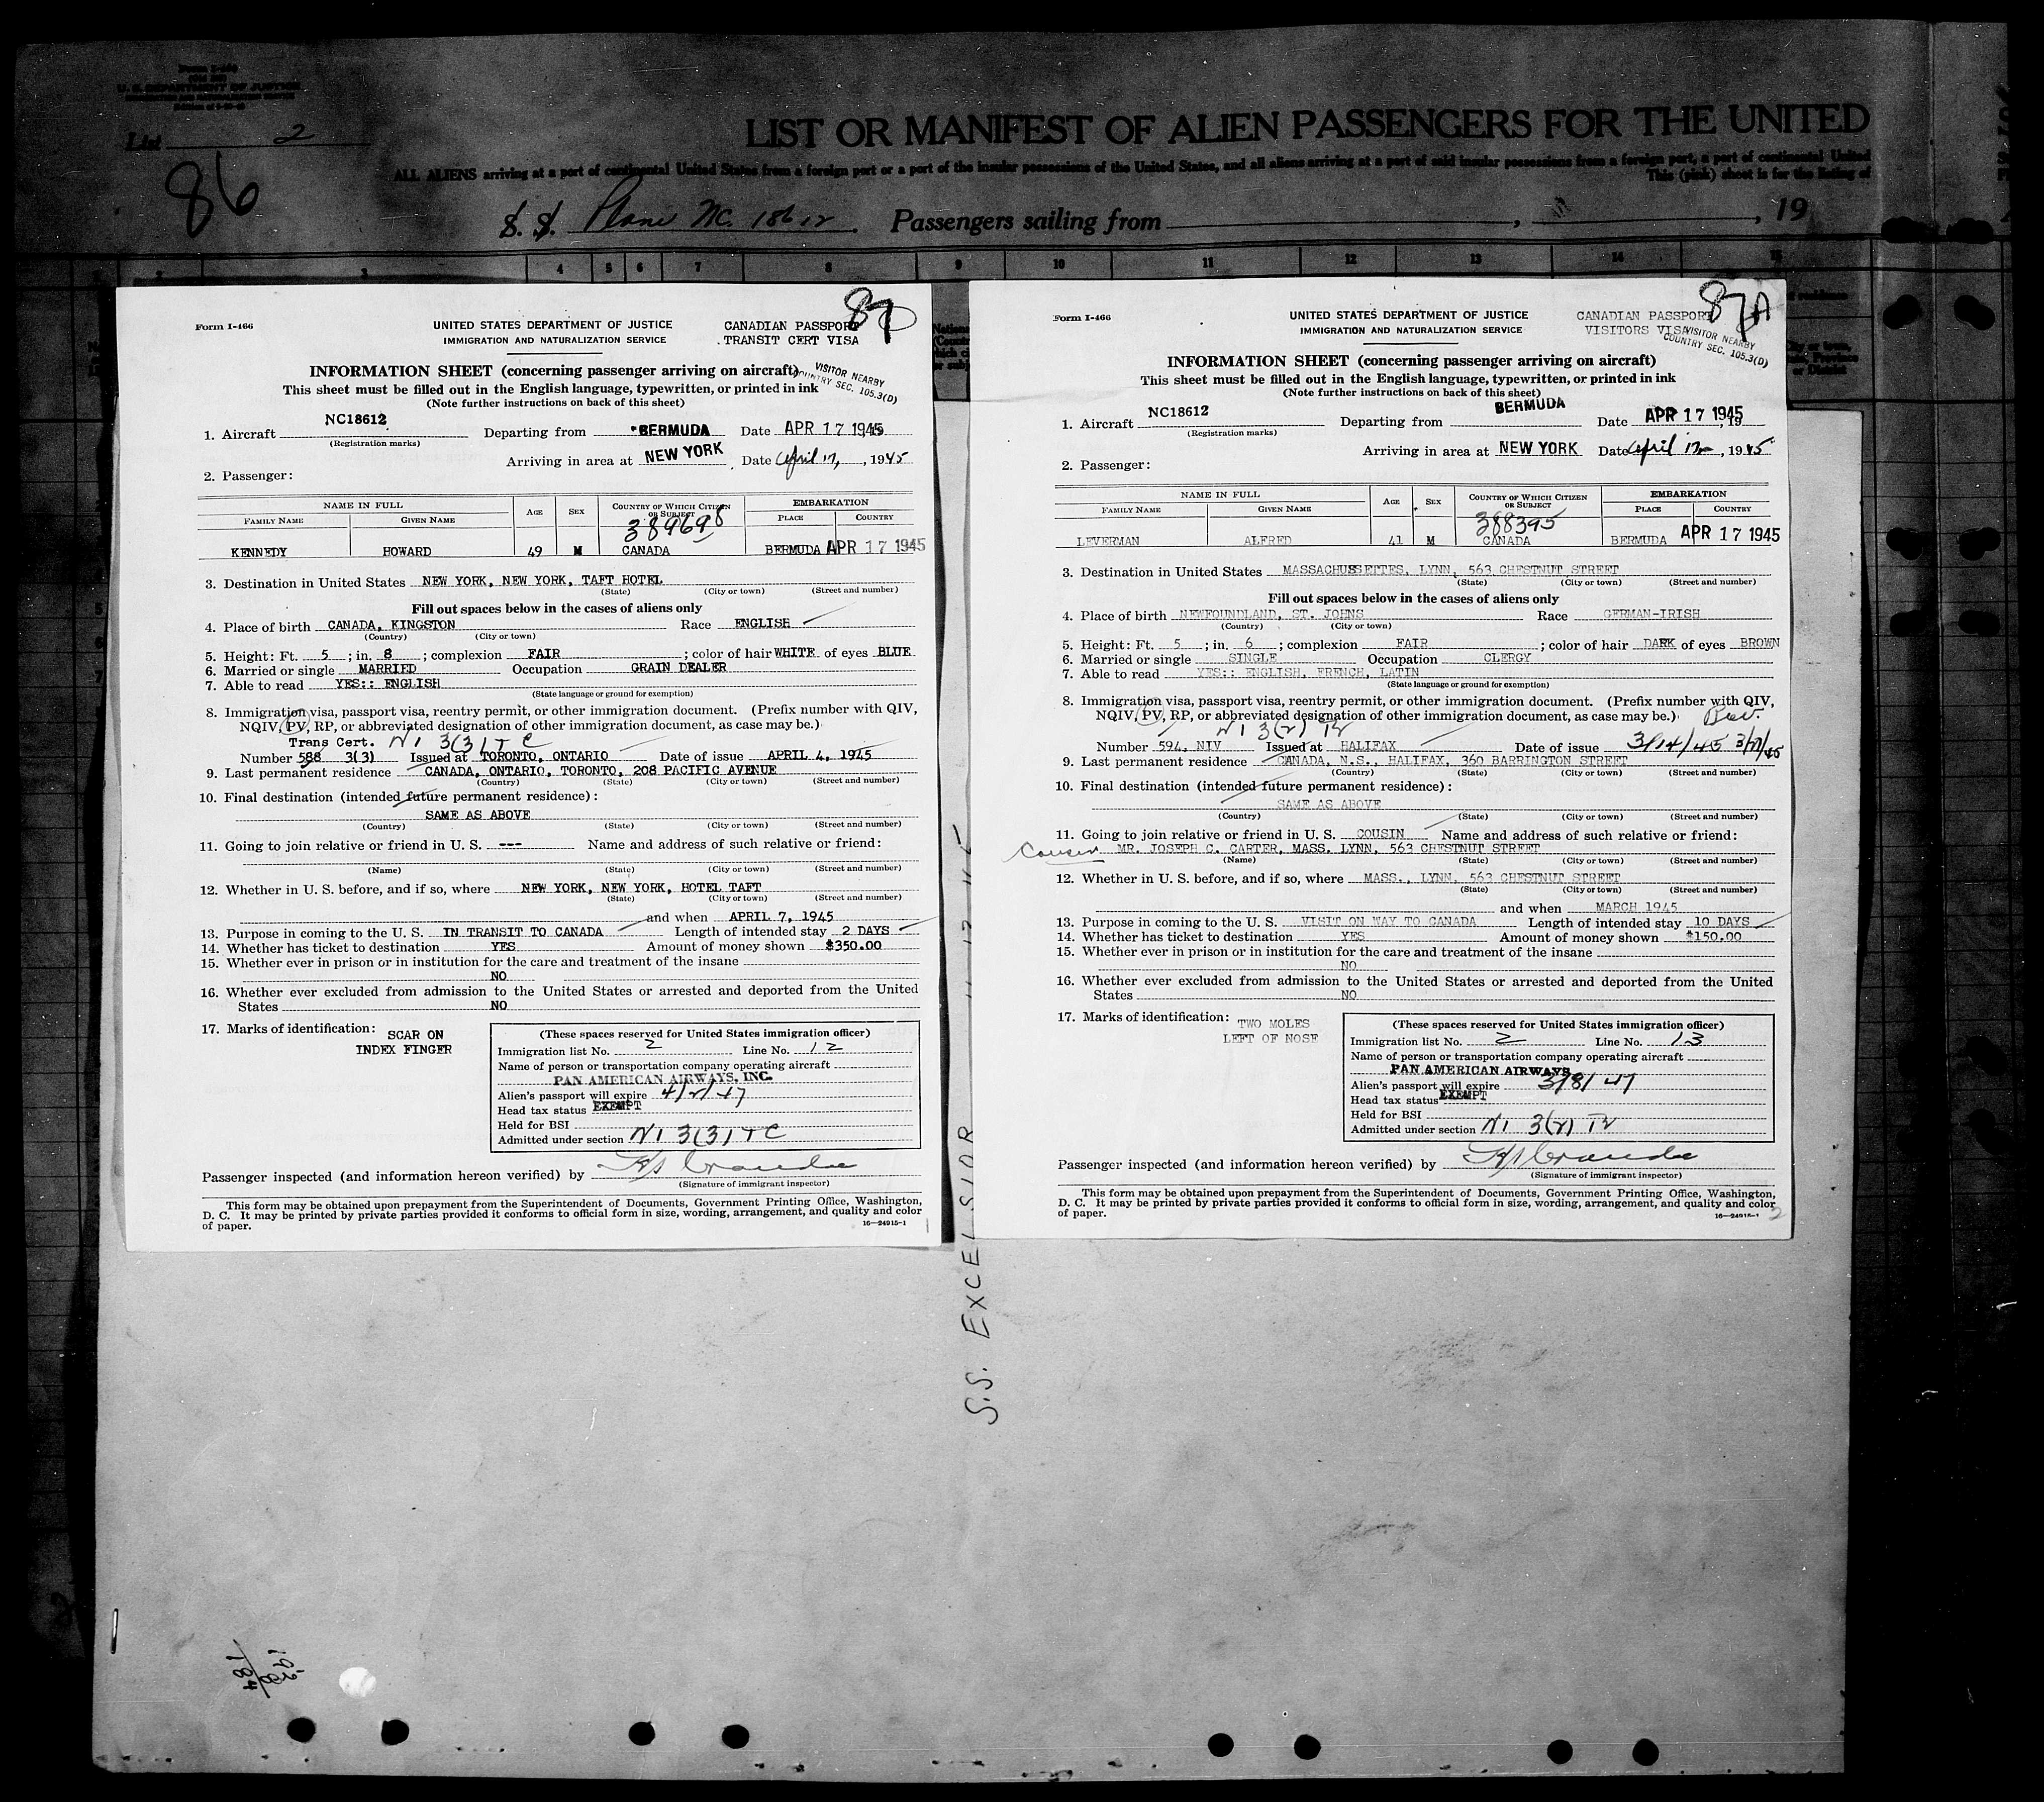 U. S. DEPARTMENT OF JUSTICE
List 2
86
LIST OR MANIFEST OF ALIEN PASSENGERS FOR THE UNITED
ALL ALIENS arriving at a port of continental United States from a foreign port or a port of the insular possessions of the United States, and all aliens arriving at a port of said insular possessions from a foreign port, a port of continental United
This (pink) sheet is for the listing of
S. S. Plane NC. 18612 Passengers sailing from , , 19
2 3 4 5 6 7 8 9 10 11 12 13 14 15
87
Form I-466
UNITED STATES DEPARTMENT OF JUSTICE
IMMIGRATION AND NATURALIZATION SERVICE
CANADIAN PASSPORT
TRANSIT CERT VISA
VISITOR NEARBY
COUNTRY SEC. 105.3(D)
INFORMATION SHEET (concerning passenger arriving on aircraft)
This sheet must be filled out in the English language, typewritten, or printed in ink
(Note further instructions on back of this sheet)
1. Aircraft NC18612 Departing from BERMUDA Date APR 17 1945
(Registration marks)
Arriving in area at NEW YORK Date April 17, , 1945
2. Passenger:
NAME IN FULL AGE SEX COUNTRY OF WHICH CITIZEN OR SUBJECT EMBARKATION
FAMILY NAME GIVEN NAME PLACE COUNTRY
389698
KENNEDY HOWARD 49 M CANADA BERMUDA APR 17 1945
3. Destination in United States NEW YORK, NEW YORK, TAFT HOTEL
(State) (City or town) (Street and number)
Fill out spaces below in the cases of aliens only
4. Place of birth CANADA, KINGSTON Race ENGLISH
(Country) (City or town)
5. Height: Ft. 5 ; in. 8 ; complexion FAIR ; color of hair WHITE of eyes BLUE
6. Married or single MARRIED Occupation GRAIN DEALER
7. Able to read YES:: ENGLISH
(State language or ground for exemption)
8. Immigration visa, passport visa, reentry permit, or other immigration document. (Prefix number with QIV,
NQIV, PV, RP, or abbreviated designation of other immigration document, as case may be.)
Trans Cert. NI 3(3) TC
Number 588 3(3) Issued at TORONTO, ONTARIO Date of issue APRIL 4, 1945
9. Last permanent residence CANADA, ONTARIO, TORONTO, 208 PACIFIC AVENUE
(Country) (State) (City or town) (Street and number)
10. Final destination (intended future permanent residence):
SAME AS ABOVE
(Country) (State) (City or town) (Street and number)
11. Going to join relative or friend in U. S. --- Name and address of such relative or friend:
(Name) (State) (City or town) (Street and number)
12. Whether in U. S. before, and if so, where NEW YORK, NEW YORK, HOTEL TAFT
(State) (City or town) (Street and number)
and when APRIL 7, 1945
13. Purpose in coming to the U. S. IN TRANSIT TO CANADA Length of intended stay 2 DAYS
14. Whether has ticket to destination YES Amount of money shown $350.00
15. Whether ever in prison or in institution for the care and treatment of the insane
NO
16. Whether ever excluded from admission to the United States or arrested and deported from the United
States NO
17. Marks of identification: SCAR ON
INDEX FINGER
(These spaces reserved for United States immigration officer)
Immigration list No. 2 Line No. 12
Name of person or transportation company operating aircraft
PAN AMERICAN AIRWAYS, INC.
Alien's passport will expire 4/2/47
Head tax status EXEMPT
Held for BSI
Admitted under section NI 3(3) TC
Passenger inspected (and information hereon verified) by
(Signature of immigrant inspector)
This form may be obtained upon prepayment from the Superintendent of Documents, Government Printing Office, Washington,
D. C. It may be printed by private parties provided it conforms to official form in size, wording, arrangement, and quality and color
of paper.
16—24915-1
87A
Form I-466
UNITED STATES DEPARTMENT OF JUSTICE
IMMIGRATION AND NATURALIZATION SERVICE
CANADIAN PASSPORT
VISITORS VISA
VISITOR NEARBY
COUNTRY SEC. 105.3(D)
INFORMATION SHEET (concerning passenger arriving on aircraft)
This sheet must be filled out in the English language, typewritten, or printed in ink
(Note further instructions on back of this sheet)
1. Aircraft NC18612 Departing from BERMUDA Date APR 17 1945, 19
(Registration marks)
Arriving in area at NEW YORK Date April 17 , 1945
2. Passenger:
NAME IN FULL AGE SEX COUNTRY OF WHICH CITIZEN OR SUBJECT EMBARKATION
FAMILY NAME GIVEN NAME PLACE COUNTRY
388395
LEVERMAN ALFRED 41 M CANADA BERMUDA APR 17 1945
3. Destination in United States MASSACHUSSETTES, LYNN, 563 CHESTNUT STREET
(State) (City or town) (Street and number)
Fill out spaces below in the cases of aliens only
4. Place of birth NEWFOUNDLAND, ST. JOHNS Race GERMAN-IRISH
(Country) (City or town)
5. Height: Ft. 5 ; in. 6 ; complexion FAIR ; color of hair DARK of eyes BROWN
6. Married or single SINGLE Occupation CLERGY
7. Able to read YES:: ENGLISH, FRENCH, LATIN
(State language or ground for exemption)
8. Immigration visa, passport visa, reentry permit, or other immigration document. (Prefix number with QIV,
NQIV, PV, RP, or abbreviated designation of other immigration document, as case may be.)
NI 3(2)
Number 594, NIV Issued at HALIFAX Date of issue 3/14/45 3/27/45
9. Last permanent residence CANADA, N.S., HALIFAX, 360 BARRINGTON STREET
(Country) (State) (City or town) (Street and number)
10. Final destination (intended future permanent residence):
SAME AS ABOVE
(Country) (State) (City or town) (Street and number)
11. Going to join relative or friend in U. S. COUSIN Name and address of such relative or friend:
Cousin MR. JOSEPH C. CARTER, MASS. LYNN, 563 CHESTNUT STREET
(Name) (State) (City or town) (Street and number)
12. Whether in U. S. before, and if so, where MASS., LYNN, 563 CHESTNUT STREET
(State) (City or town) (Street and number)
and when MARCH 1945
13. Purpose in coming to the U. S. VISIT ON WAY TO CANADA Length of intended stay 10 DAYS
14. Whether has ticket to destination YES Amount of money shown $150.00
15. Whether ever in prison or in institution for the care and treatment of the insane
NO
16. Whether ever excluded from admission to the United States or arrested and deported from the United
States NO
17. Marks of identification: TWO MOLES
LEFT OF NOSE
(These spaces reserved for United States immigration officer)
Immigration list No. 2 Line No. 13
Name of person or transportation company operating aircraft
PAN AMERICAN AIRWAYS
Alien's passport will expire 3/8/47
Head tax status EXEMPT
Held for BSI
Admitted under section NI 3(2)
Passenger inspected (and information hereon verified) by
(Signature of immigrant inspector)
This form may be obtained upon prepayment from the Superintendent of Documents, Government Printing Office, Washington,
D. C. It may be printed by private parties provided it conforms to official form in size, wording, arrangement, and quality and color
of paper.
16—24915-1
S.S. EXCELSIOR